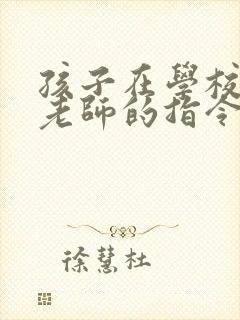 孩子在學校
老師的指令
徐慧杜